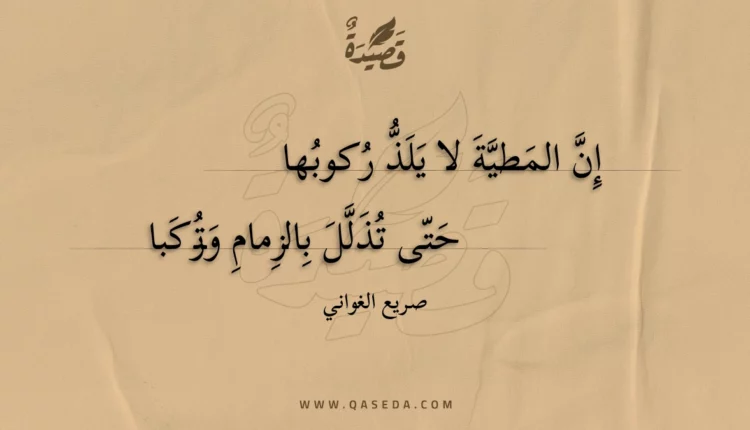 قَصِيْدَةٌ
إِنَّ المَطيَّةَ لا يَلَذُّ رُكوبُها
حَتّى تُذَلَّلَ بِالزِمامِ وَتُركَبا
صريع الغواني
WWW.QASEDA.COM